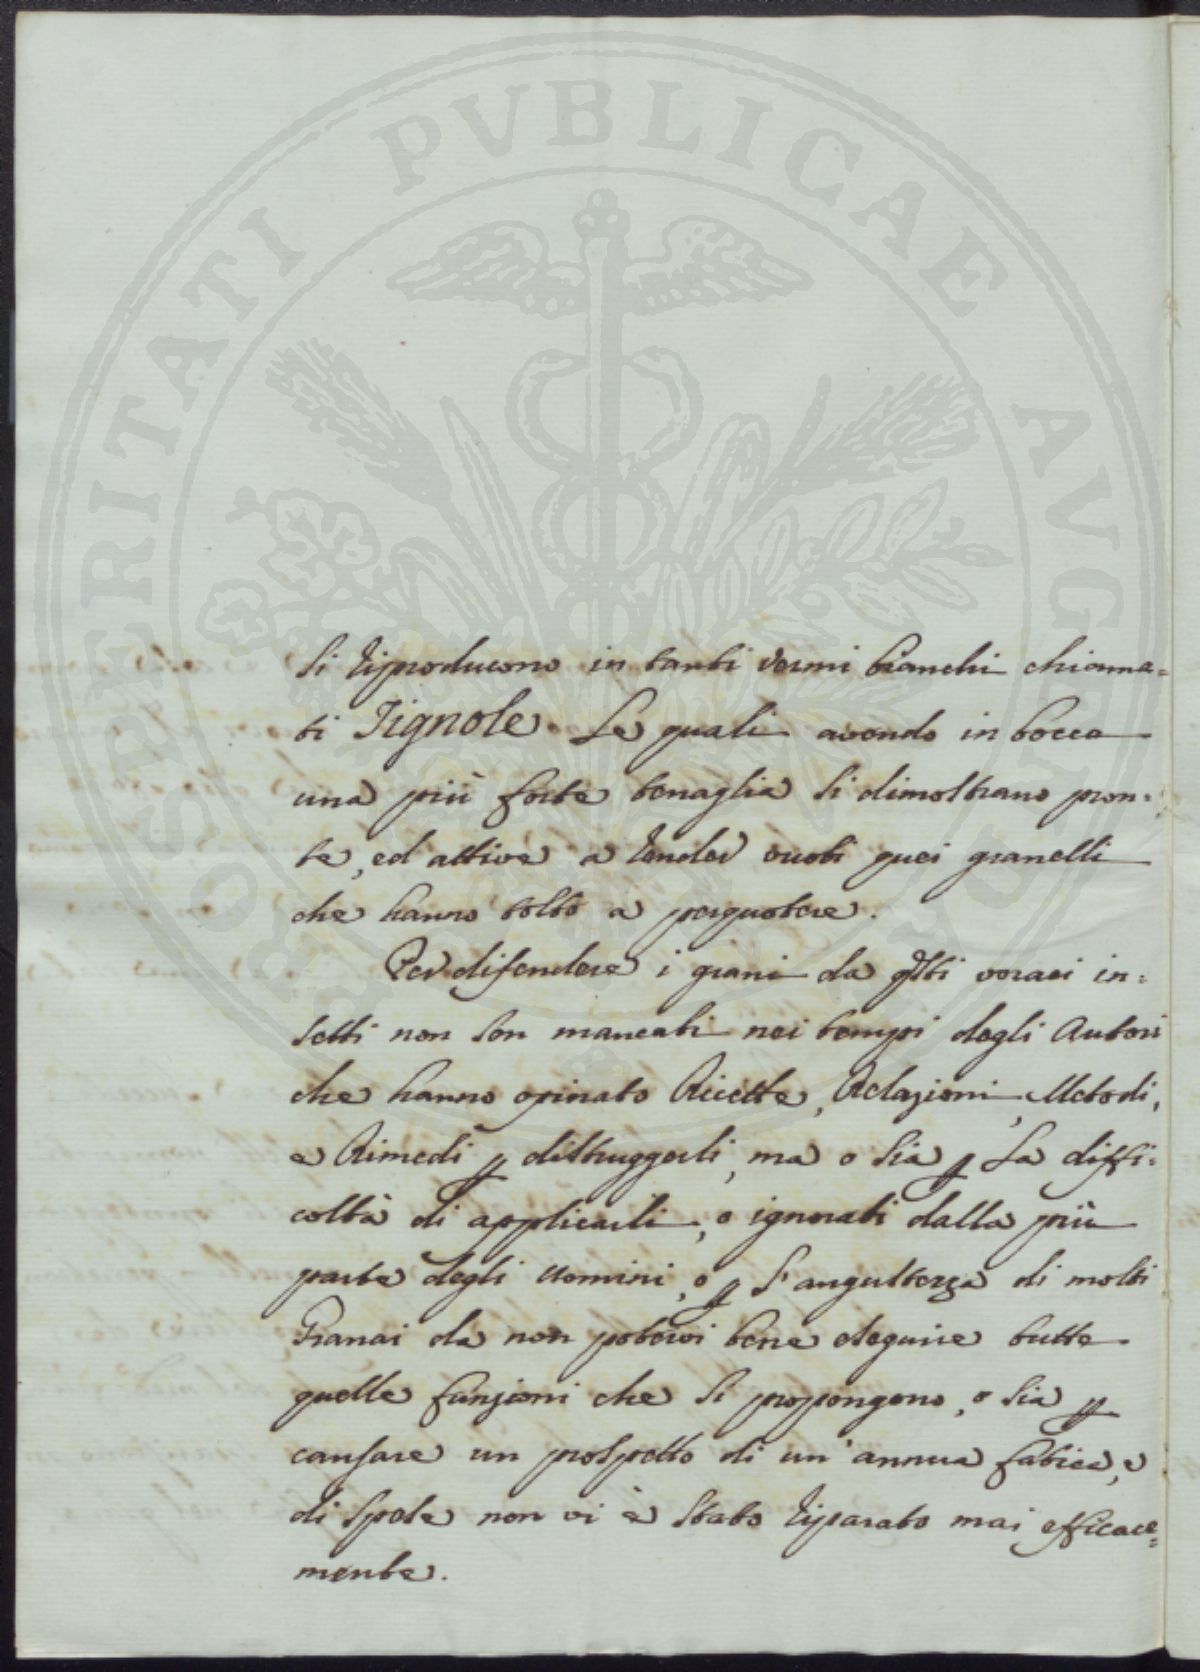 PROSPERITATI PVBLICAE AVGENDAE
si riproducono in tanti vermi bianchi chiama=
ti Tignole. Le quali avendo in bocca
una più forte tenaglia si dimostrano pron=
te, ed attive a render vuoti quei granelli
che hanno tolto a perquotere.
Per difendere i grani da qsti voraci in=
setti non son mancati nei tempi degli Autori
che hanno opinato Ricette, Relazioni, Metodi,
e Rimedi p distruggerli, ma o sia p la diffi=
coltà di applicarli, o ignorati dalla più
parte degli Uomini, o p l'angustezza di molti
Granai da non potervi bene eseguire tutte
quelle funzioni che si propongono, o sia p
causare un prospetto di un'annua fatica, e
di spese non vi è stato riparato mai efficace=
mente.